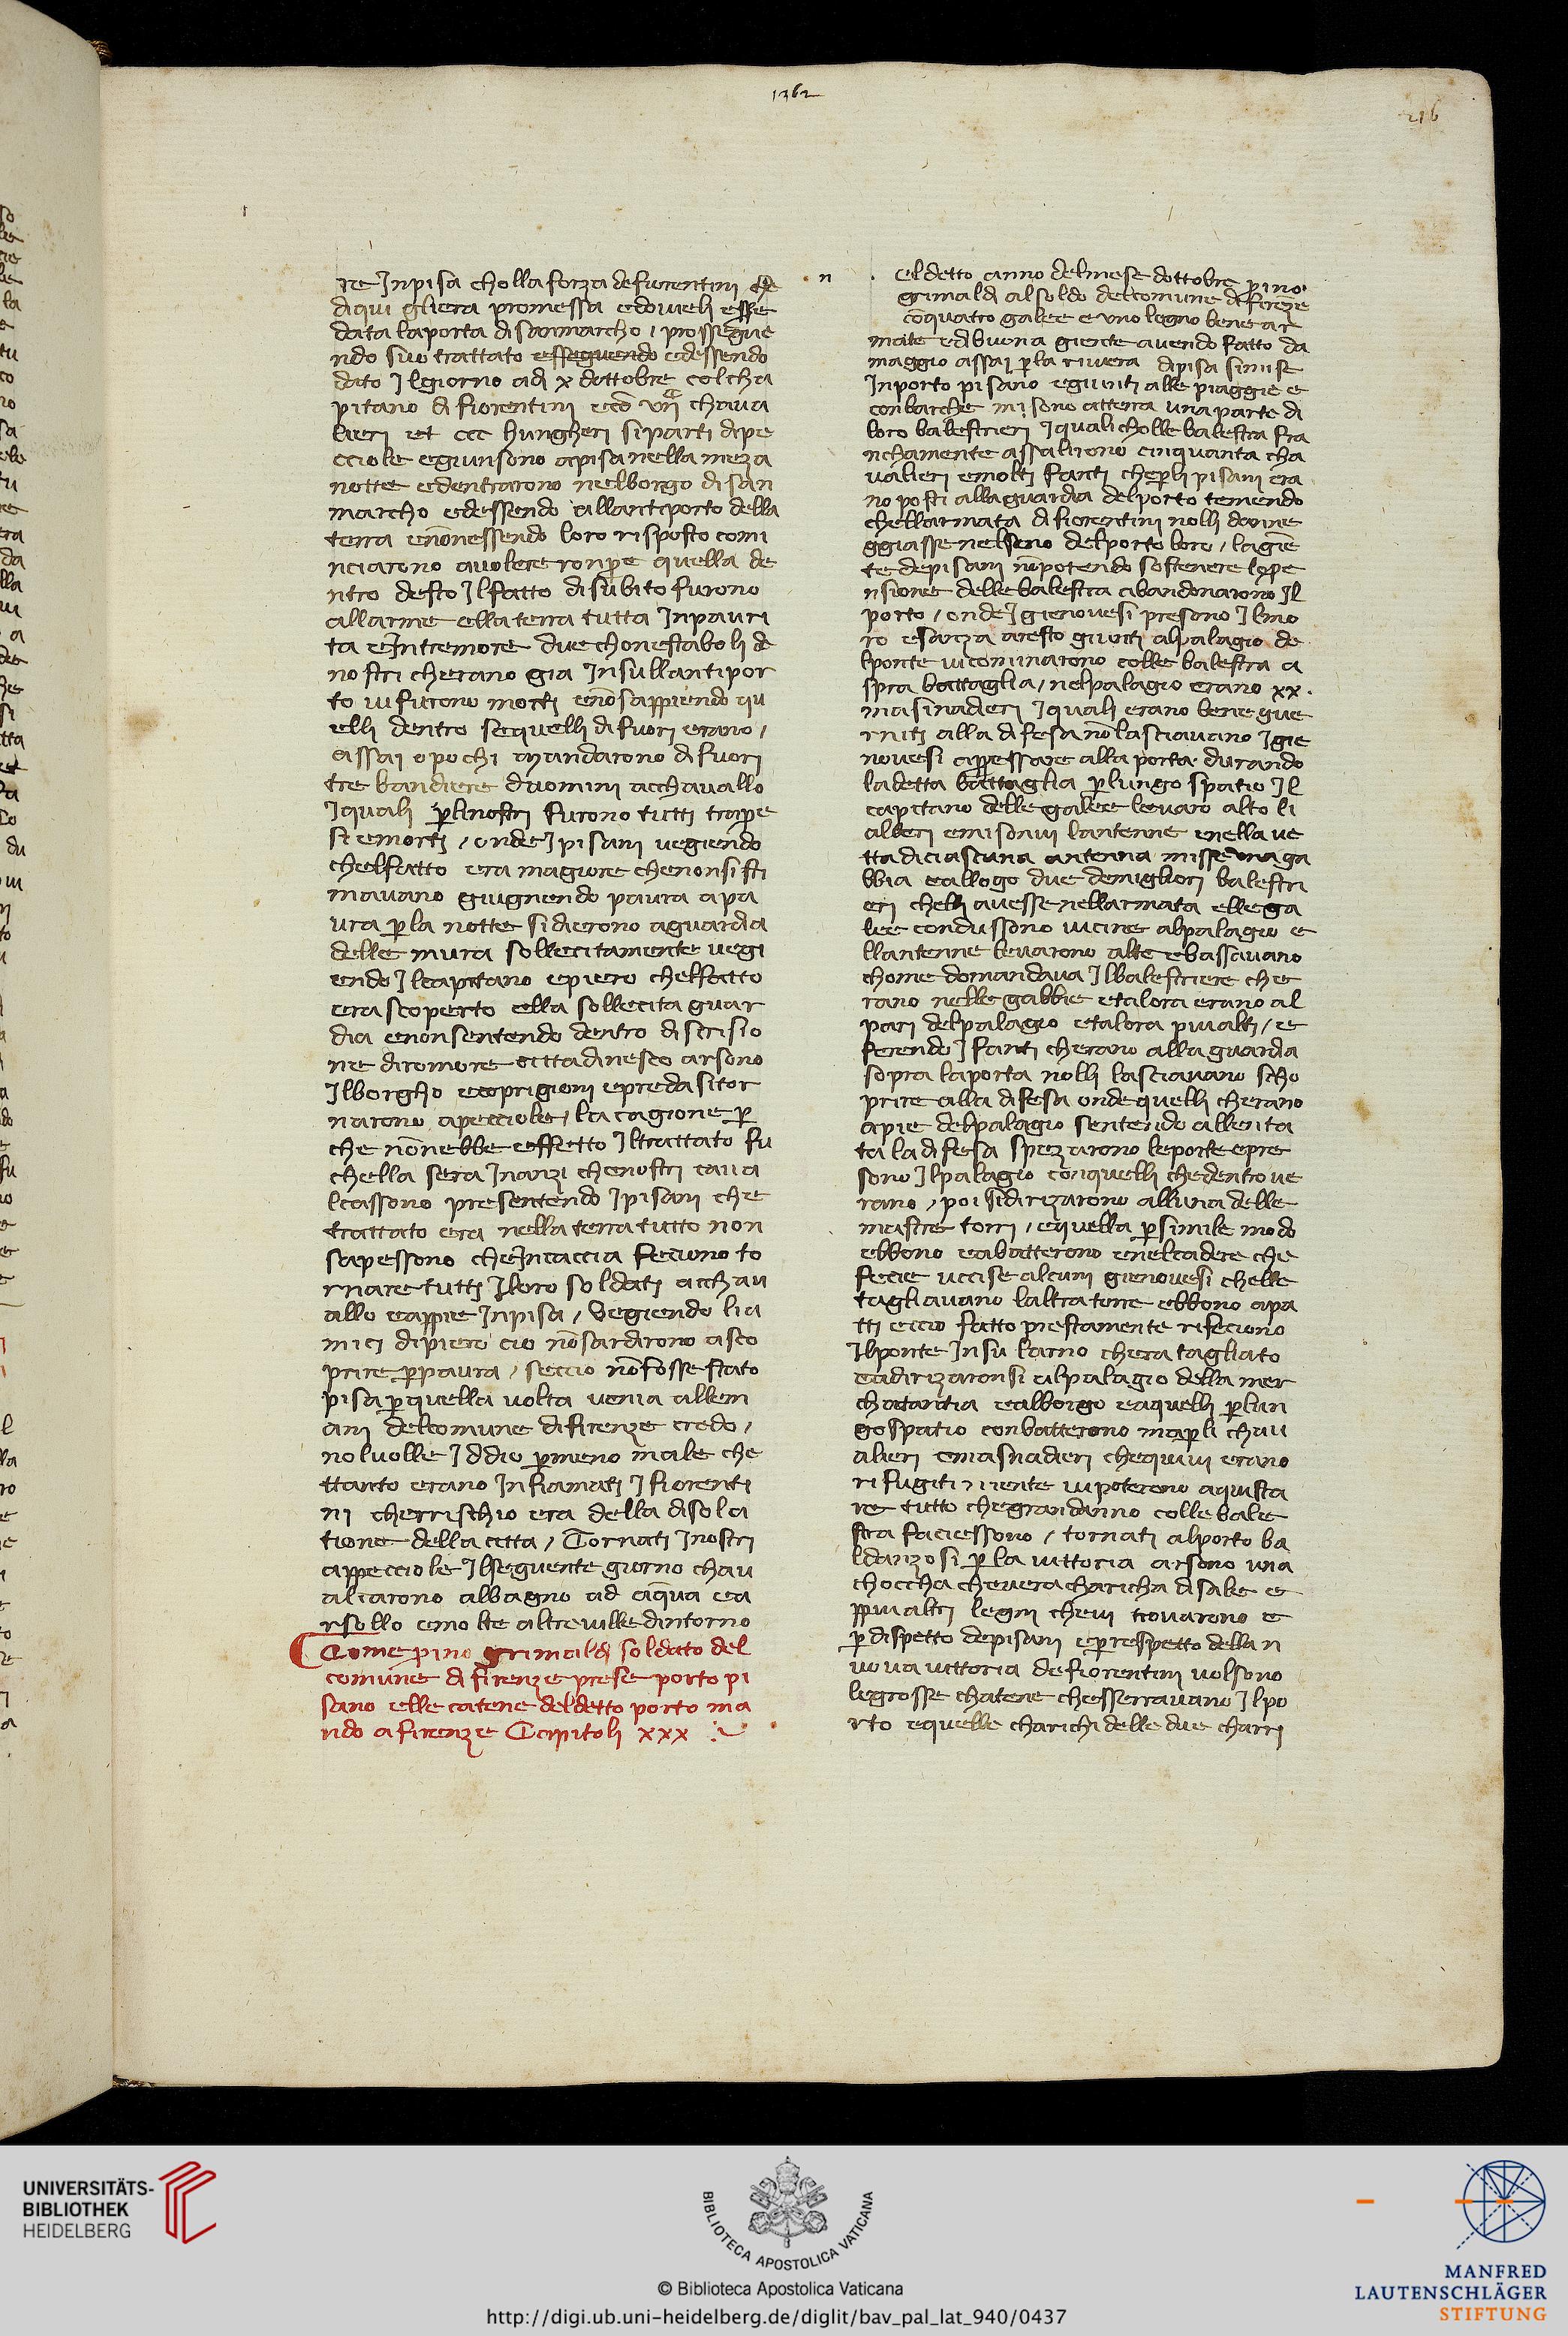 1362
216
re Jnpisa cholla forza defiorentini che
diqui gliera promessa edovieli esse
data laporta disanmarcho / prossegue
ndo suo trattato essequendo edessendo
dato Jlgiorno adi x dottobre colcha
pitano di fiorentini eco vii chaua
lieri et ccc hungheri siparti dipe
cciole egiunsono apisa nella meza
notte edentrarono nelborgo disan
marcho edessendo allantiporto della
terra enonessendo loro risposto comi
nciarono auolere ronpe quella de
ntro desto Jlfatto disubito furono
allarme ella terra tutta Jnpauri
ta eJntremore due chonestaboli de
nostri cherano gia Jnsullantipor
to uifurono morti enosappiendo qu
elli dentro sequelli difuori erano /
assai opochi mandarono difuori
tre bandiere duomini acchauallo
Jquali plinostri furono tutti trape
si emorti / onde Jpisani uegiendo
chelfatto era magiore chenonsisti
mauano giugnendo paura apa
ura pla notte sidierono aguardia
delle mura sollecitamente uegi
endo Jlcapitano epiero chelfatto
era scoperto ella sollecita guar
dia enonsentendo dentro discrisio
ne diromore cittadinesco arsono
Jlborgho ecoprigioni epreda sitor
narono apecciole / la cagione p
che nonebbe effetto Jltrattato fu
chella sera Jnanzi chenostri caua
lcassono presentendo Jpisani che
trattato era nella terra tutto non
sapessono cheJncaccia feciono to
rnare tutti Jloro soldati acchau
allo eappie Jnpisa / Vegiendo lia
mici dipiero cio nosardirono asco
prire ppaura / seccio nofosse stato
pisa pquella uolta uenia allem
ani delcomune difirenze credo /
noluolle Jddio pmeno male che
ttanto erano Jnfiamati Jfiorenti
ni cherrischio era della disola
tione della citta / Tornati Jnostri
appecciole Jlseguente giorno chau
alcarono albagno ad aqua ea
rsollo emolte altreuille dintorno
Come pino grimaldi soldato del
comune di firenze prese porto pi
sano elle catene deldetto porto ma
ndo afirenze Capitoli xxx
n
eldetto anno delmese dottobre pino
grimaldi alsoldo delcomune difirenze
conquatro galee e uno legno bene ar
mate edibuona giente auendo fatto da
maggio assai pla riuera dipisa simise
Jnporto pisano egiunti alle piaggie e
conbarche misono atterra una parte di
loro balestrieri Jquali cholle balestra fra
nchamente assalirono cinquanta cha
ualieri emolti fanti chepli pisani era
no posti allaguardia delporto temendo
chellarmata difiorentini nolli danne
ggiasse nelseno delporto loro / lagie
te depisani nopotendo sostenere lope
nsione delle balestra abandonarono Jl
porto / onde Jgienouesi presono Jlmo
ro esanza aresto giunti alpalagio de
lponte uicominciarono colle balestra a
spra battaglia / nelpalagio erano xx.
masinadieri Jquali erano bene gue
rniti alla difesa nolasciauano Jgie
nouesi apressare alla porta durando
ladetta battaglia plungo spatio Jl
capitano delle galee leuaro alto li
alberi emisonui lantenne enella ue
tta diciascuna antenna misse una ga
bbia eallogo due demigliori balestri
eri chelli auesse nellarmata ellega
lee condussono uicine alpalagio e
llantenne leuarono alte ebassauano
chome domandaua Jlbalestriere che
rano nelle gabbie etalora erano al
pari delpalagio etalora piualti / e
ferendo Jfanti cherano alla guardia
sopra laporta nolli lasciauano scho
prire alla difesa onde quelli cherano
apie delpalagio sentendo allenta
ta la difesa spezzarono leporte epre
sono Jlpalagio conquelli chedentroue
rano / poi sidirizarono alluna delle
mastre torri / equella psimile modo
ebbono eabatterono enelcadere che
fecie uccise alcuni gienouesi chelle
tagliauano laltra torre ebbono apa
tti eccio fatto prestamente rifeciono
Jlponte Jnsu larno chera tagliato
eadirizaronsi alpalagio della mer
chatantia ealborgo eaquelli plun
go spatio conbatterono mapli chau
alieri emasnadieri chequiui erano
rifugiti niente uipoterono aquista
re tutto chegrandanno colle bale
stra faciessono / tornati alporto ba
ldanzosi pla uittoria arsono una
choccha cheuera charicha disale e
ppiu altri legni cheui trouarono e
pdispetto depisani e prespetto della n
uoua uittoria defiorentini uolsono
legrosse chatene chesserrauano Jlpo
rto equelle charichi delle due charri
UNIVERSITÄTS-
BIBLIOTHEK
HEIDELBERG
BIBLIOTECA APOSTOLICA VATICANA
© Biblioteca Apostolica Vaticana
http://digi.ub.uni-heidelberg.de/diglit/bav_pal_lat_940/0437
MANFRED
LAUTENSCHLÄGER
STIFTUNG